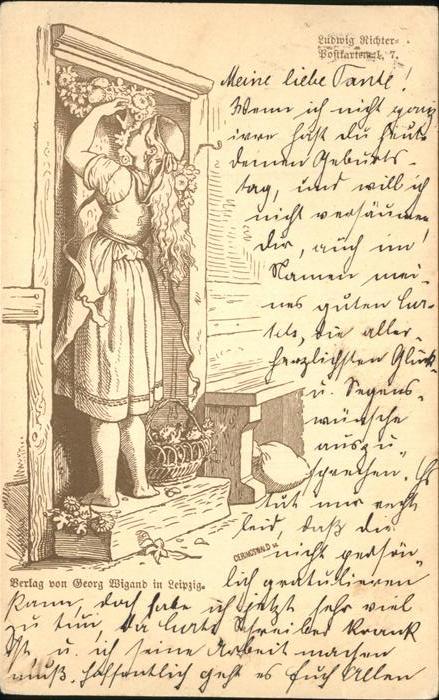 Ludwig Richter-
Postkarten I, 7.
Meine liebe Tante!
Wenn ich nicht ganz
irre hast du heut
deinen Geburts-
tag, und will ich
nicht versäumen,
dir, auch im
Namen mei-
nes guten
die aller-
herzlichsten Glück-
u. Segens-
wünsche
auszu-
sprechen. Es
tut mir recht
leid, daß dir
nicht persön-
lich gratulieren
kann, doch habe ich jetzt sehr viel
zu tun, da Schreiber krank
ist u. ich seine Arbeit machen
muß, hoffentlich geht es Euch Allen
GERINGSWALD
Verlag von Georg Wigand in Leipzig.